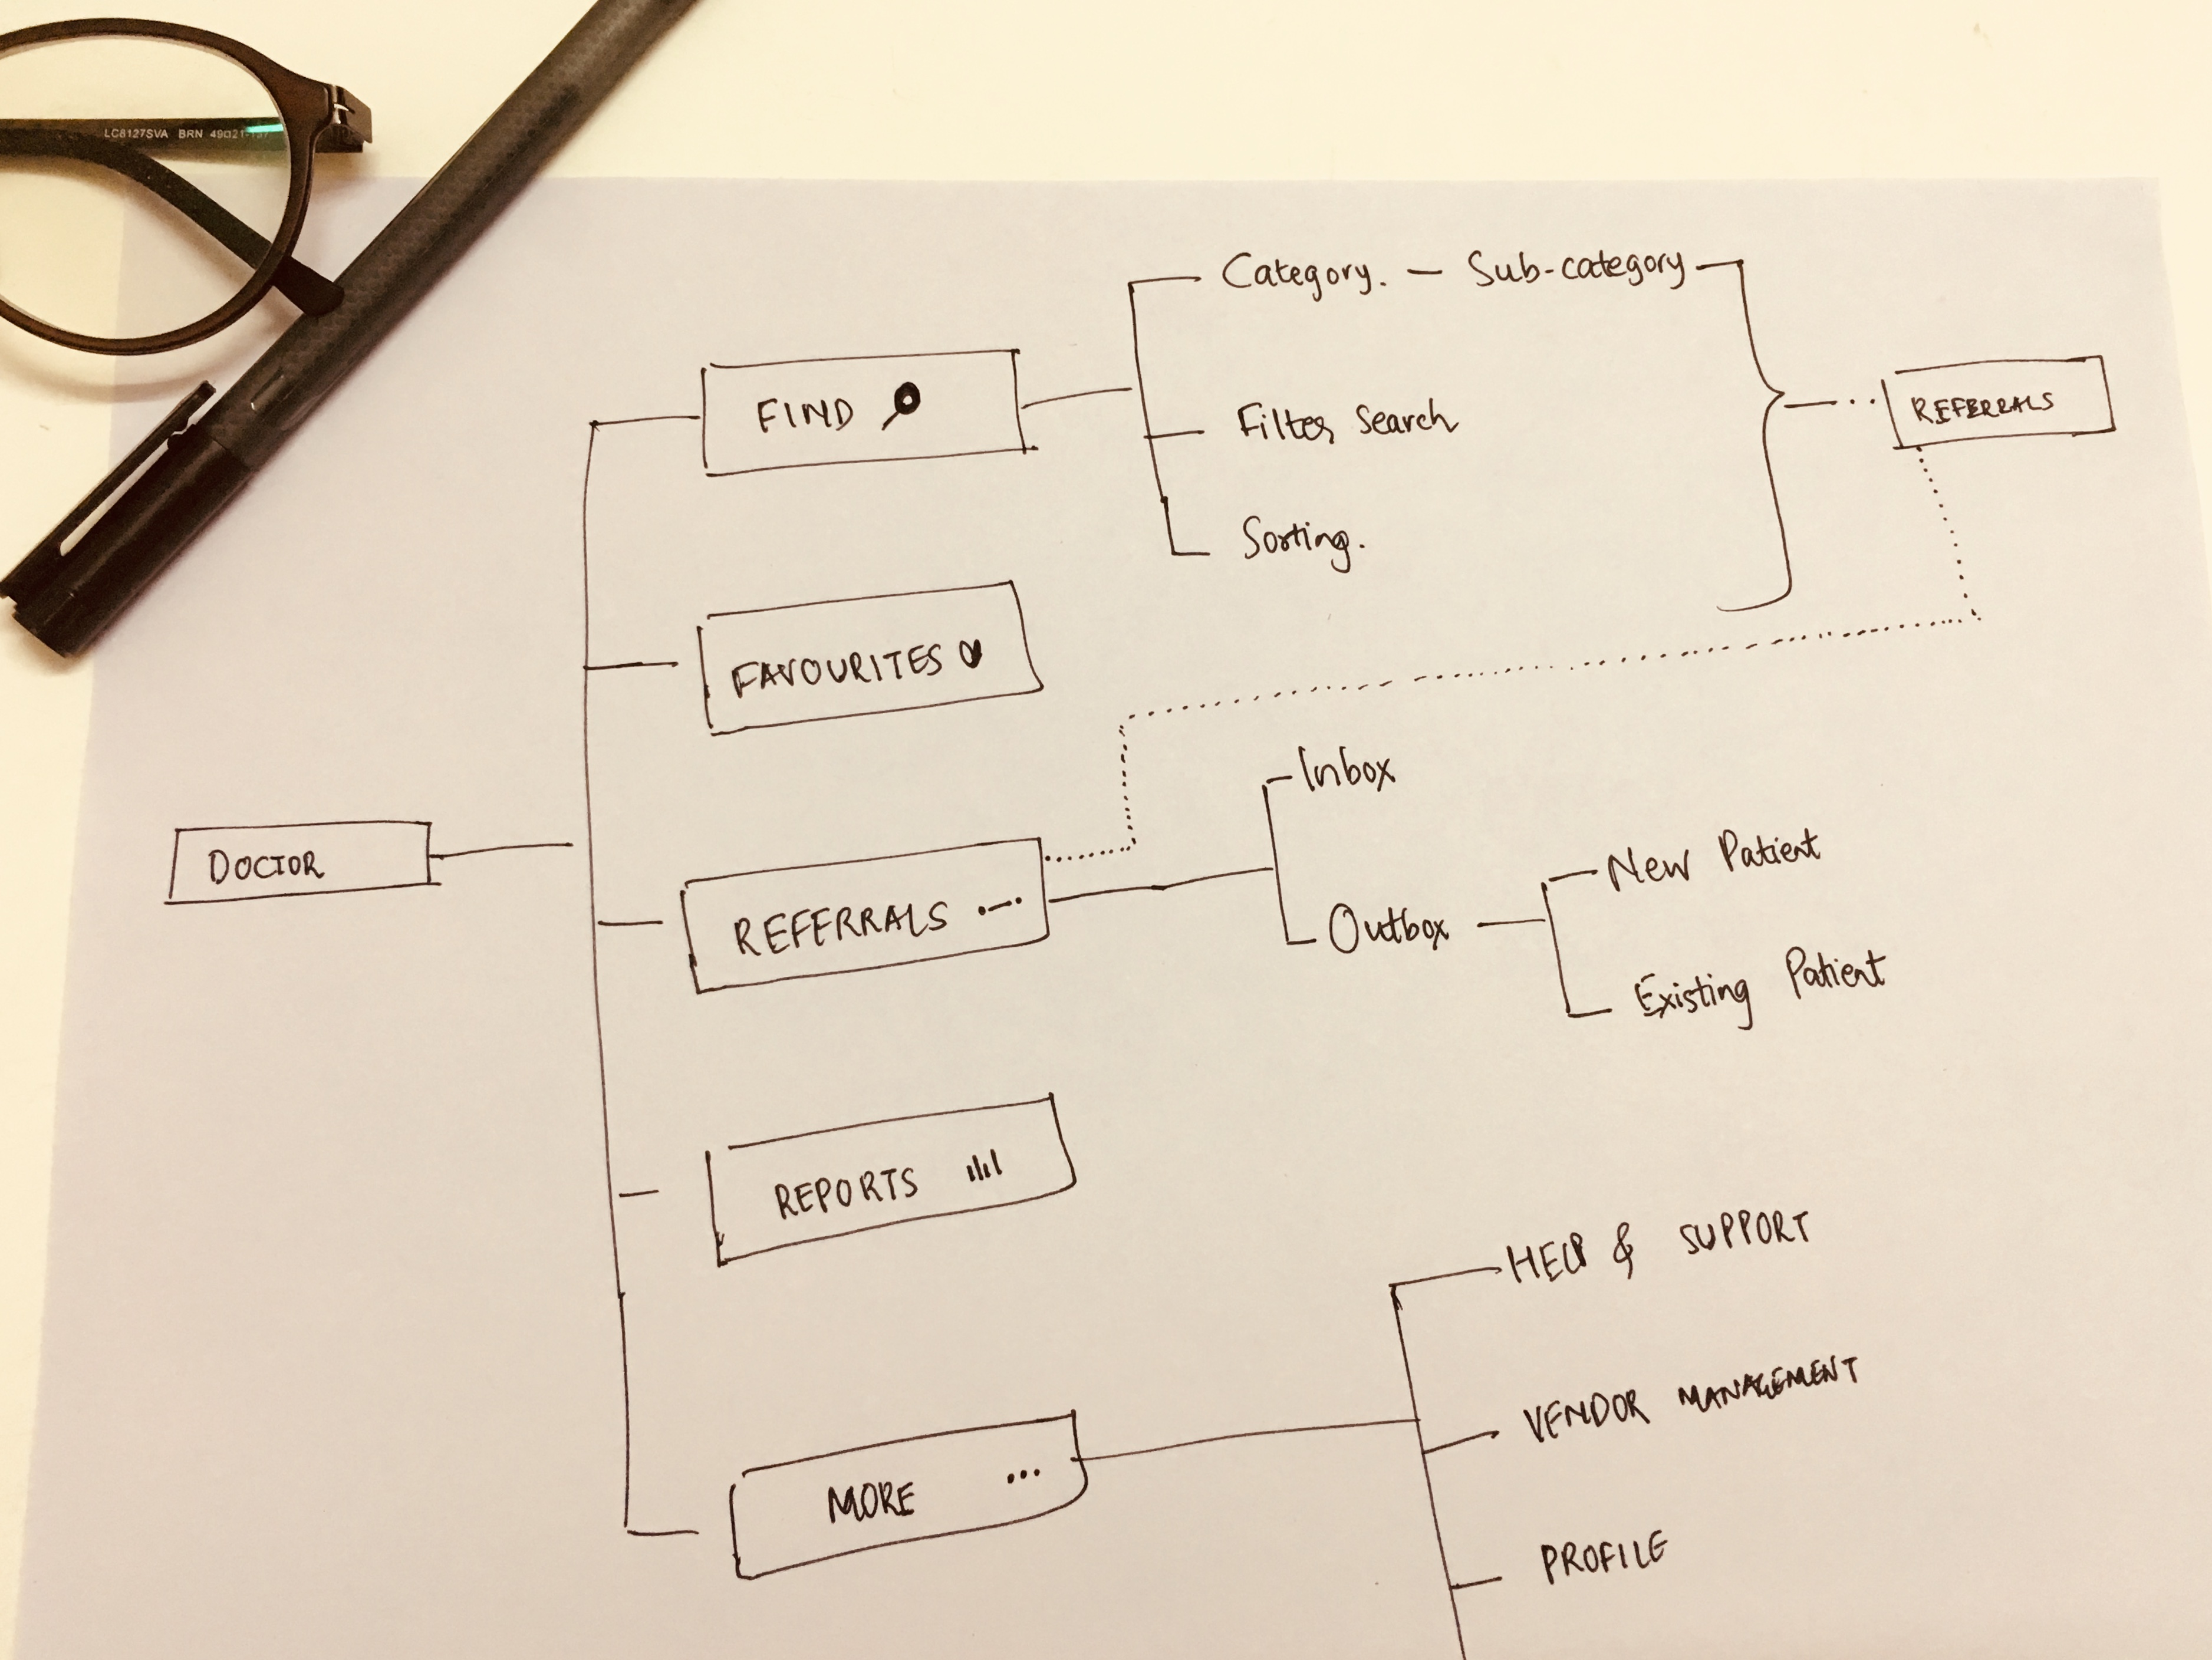 LC8127SVA BRN 49□21-137
Category. — Sub-category
FIND
REFERRALS
Filter Search
Sorting.
FAVOURITES
Inbox
DOCTOR
New Patient
REFERRALS
Outbox
Existing Patient
REPORTS
HELP & SUPPORT
VENDOR MANAGEMENT
MORE ...
PROFILE